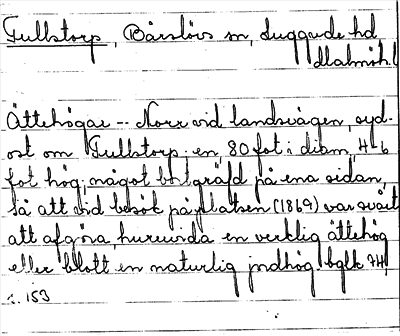 Fullstorp, Bårslövs sn, Luggude hd
Malmöh. l
Ättehögar -- Norr vid landsvägen, syd-
ost om Fullstorp en, 80 fot i diam, 4-6
fot hög, något bortgräfd på ena sidan,
så att vid besök på platsen (1869) var svårt
att afgöra, huruvida en verklig ättehög
eller blott en naturlig jordhög.
s. 153